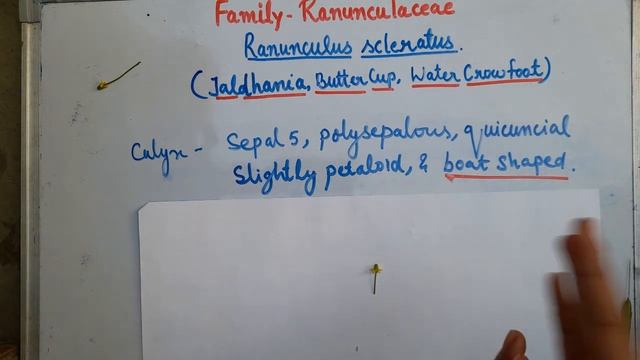 Family - Ranunculaceae
Ranunculus scleratus.
(Jaldhania, Butter Cup, Water Crowfoot)
Calyx - Sepal 5, polysepalous, quicuncial
Slightly petaloid, & boat shaped.